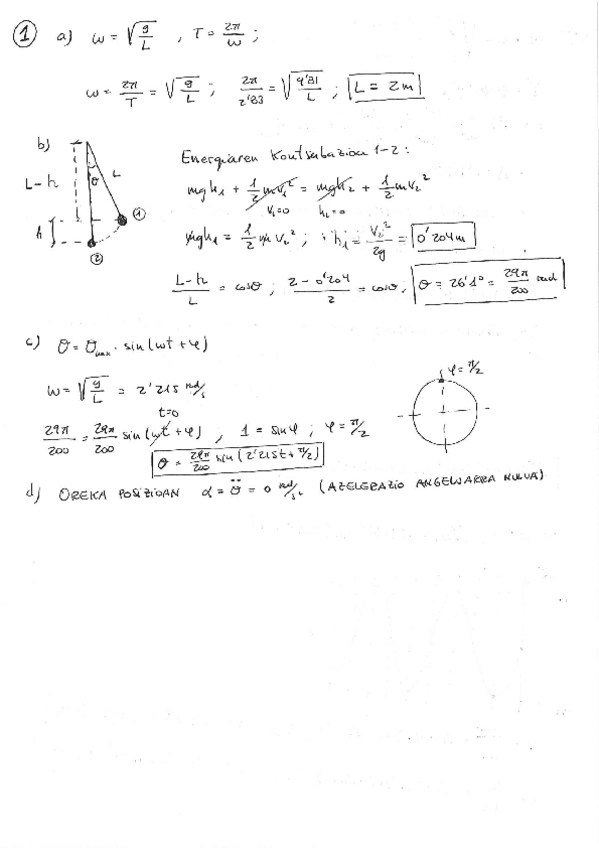 ① a) ω = √(g/L) , T = 2π/ω ;
ω = 2π/T = √(g/L) ; 2π/2'83 = √(9'81/L) ; L = 2m
b)
Energiaren Kontserbazioa 1-2:
L-h θ L
mgh₁ + 1/2 mv₁² = mgh₂ + 1/2 mv₂²
v₁=0 h₂=0
h ① ②
mgh₁ = 1/2 m v₂² ; h₁ = v₂²/2g = 0'204m
(L-h)/L = cosθ ; (2-0'204)/2 = cosθ , θ = 26'1° = 29π/200 rad
c) θ = θmax · sin(ωt+φ)
φ = π/2
ω = √(g/L) = 2'215 rad/s
t=0
29π/200 = 29π/200 sin(ωt+φ) ; 1 = sinφ ; φ = π/2
θ = 29π/200 sin(2'215t + π/2)
d) OREKA POSIZIOAN α = θ̈ = 0 rad/s² (AZELERAZIO ANGELUARRA NULUA)